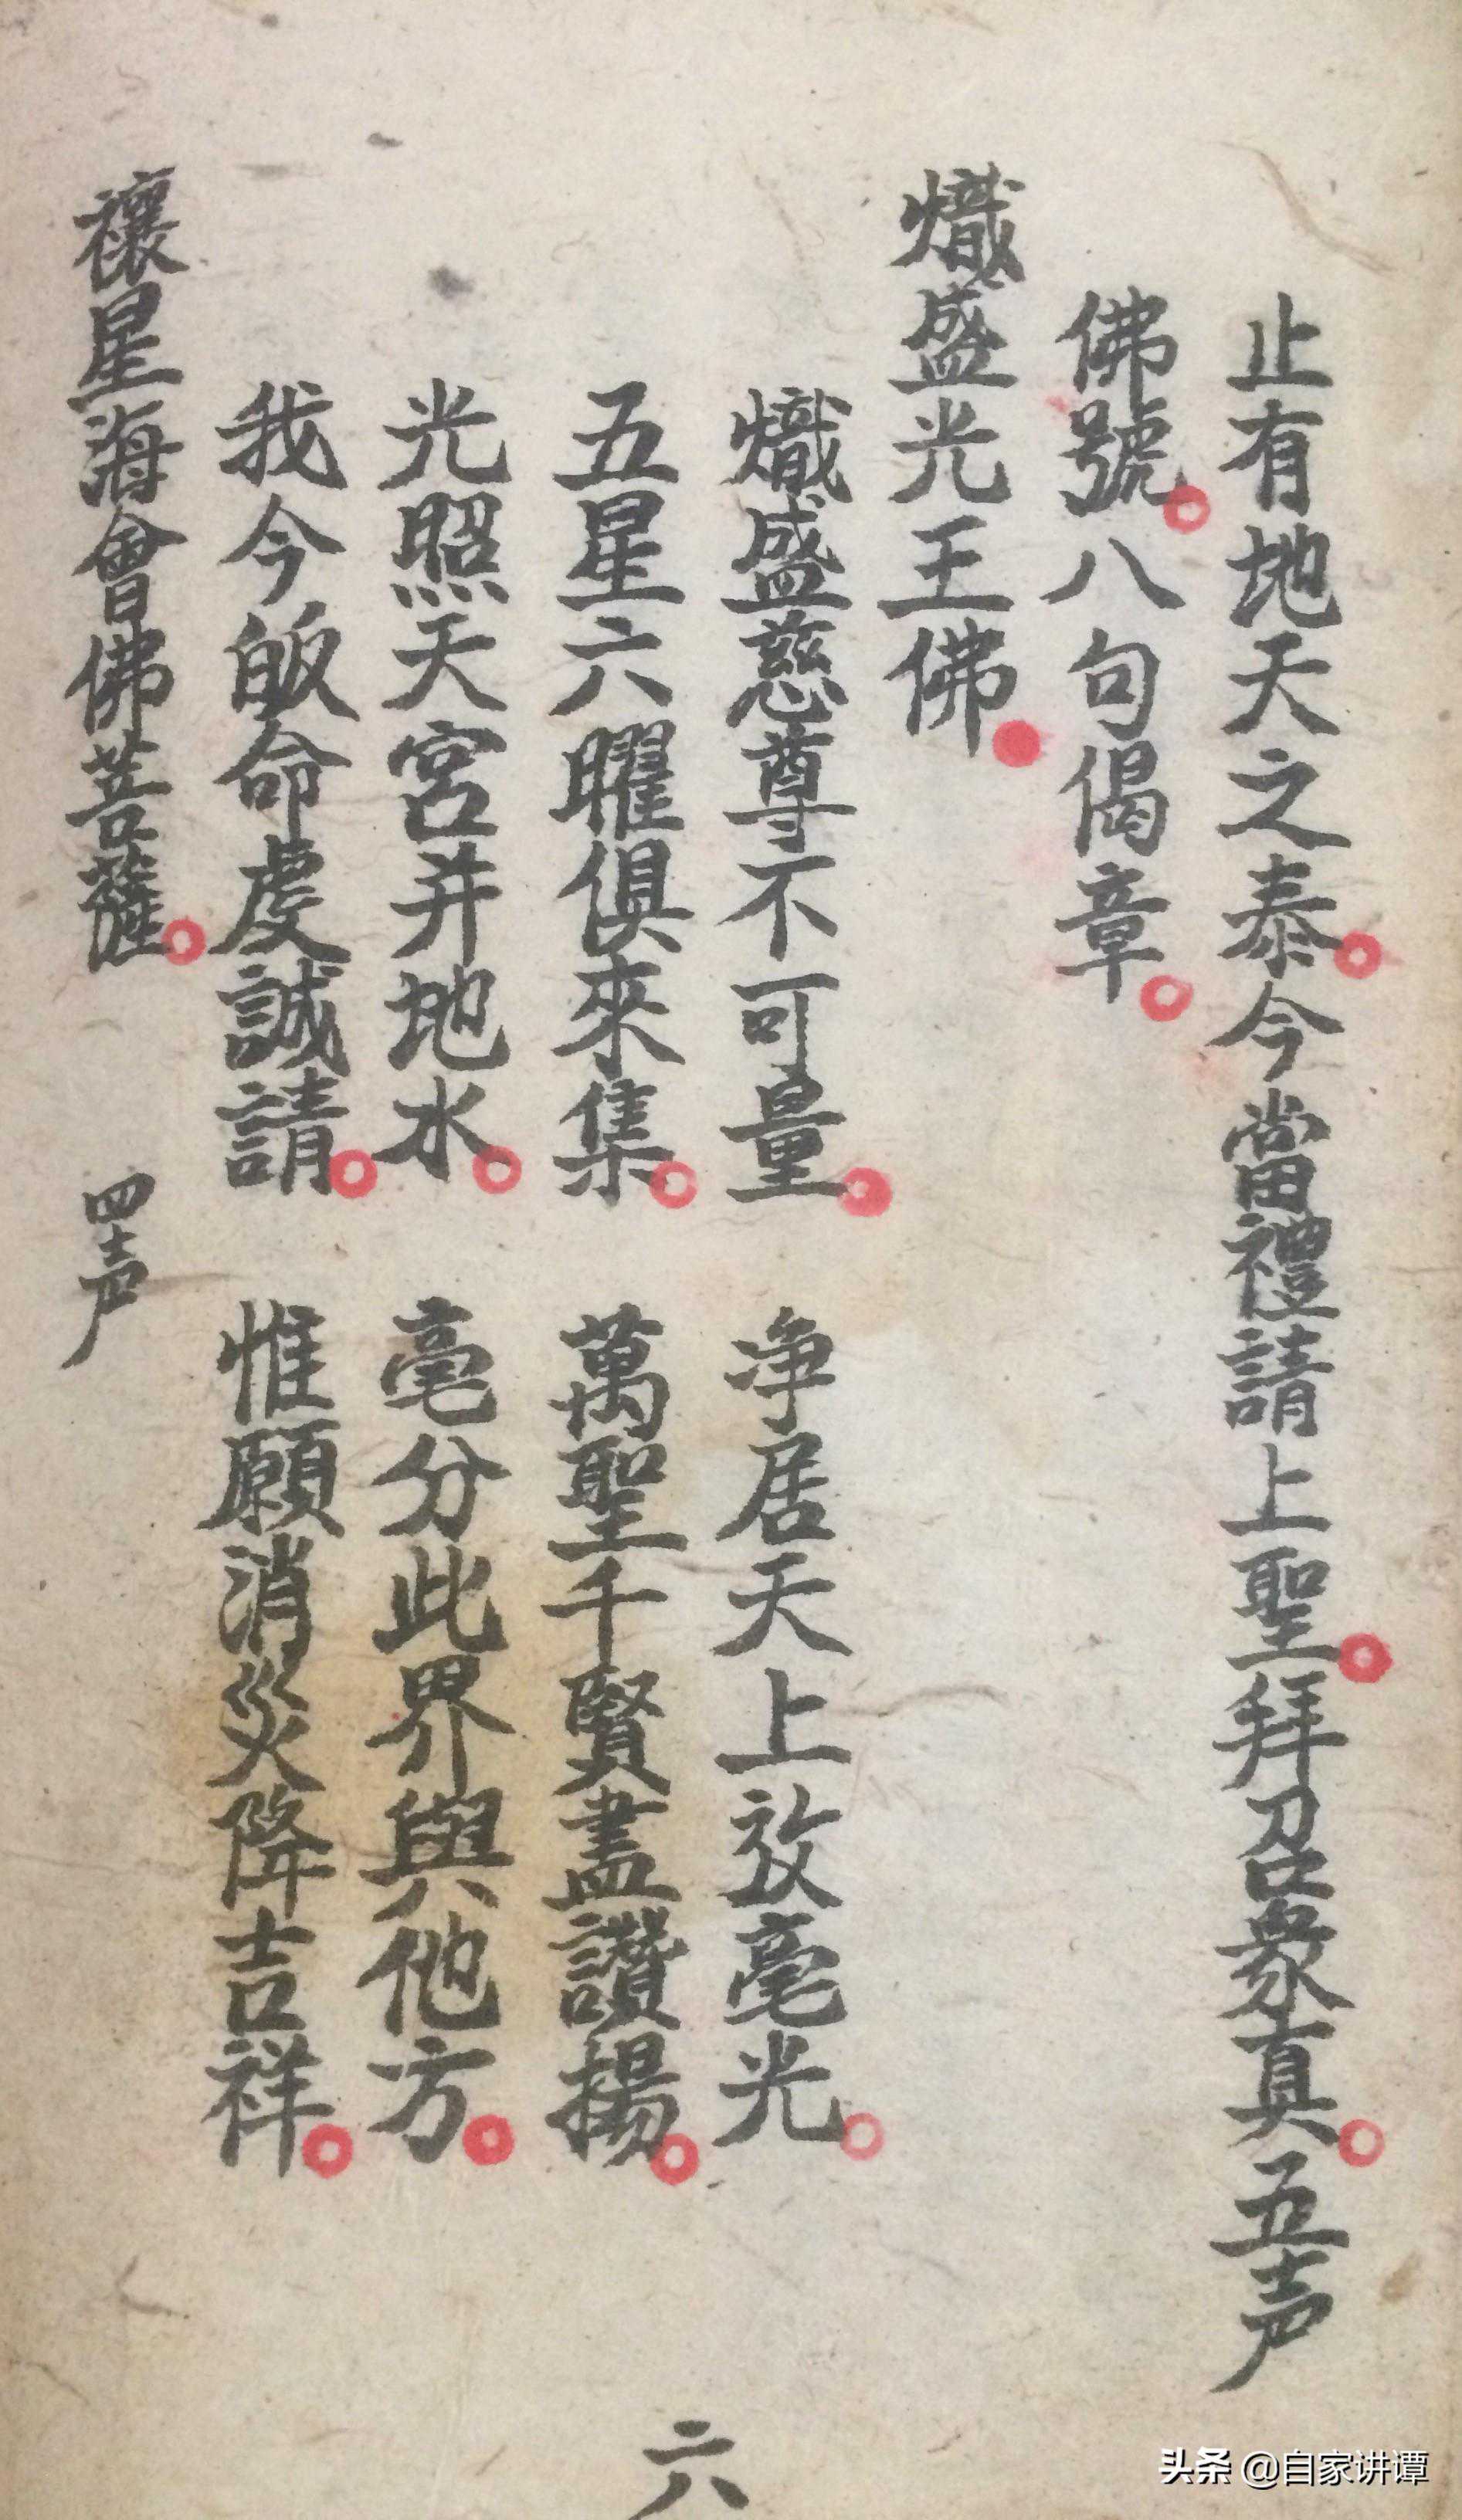 止有地天之泰。今當禮請上聖。拜召衆真。五声
佛號。八句偈章。
熾盛光王佛。
熾盛慈尊不可量。 净居天上放毫光。
五星六曜俱來集。 萬聖千賢盡讚揚。
光照天宮并地水。 毫分此界與他方。
我今皈命虔誠請。 惟願消災降吉祥。
禳星海會佛菩薩。 四声
六
头条 @自家讲谭